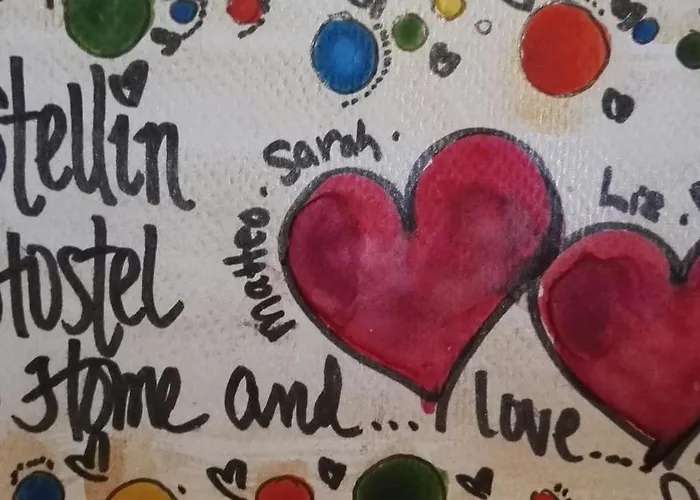 stellin
Hostel
Home and....
love....
Matteo. Sarah.